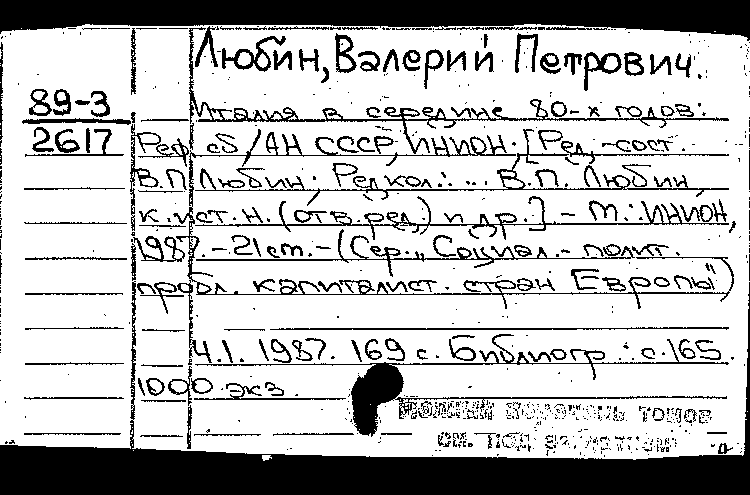 Любин, Валерий Петрович.
89-3
2617
Италия в середине 80-х годов:
Реф. сб./АН СССР, ИНИОН; [Ред.-сост.
В.П. Любин; Редкол.: ... В.П. Любин,
к.ист.н. (отв. ред.) и др.] - М.: ИНИОН,
1987. - 21 см. - (Сер. „Социал.-полит.
пробл. капиталист. стран Европы")
Ч.1. 1987. 169 с. Библиогр.: с.165.
1000 экз.
полный перечень томов
см. под